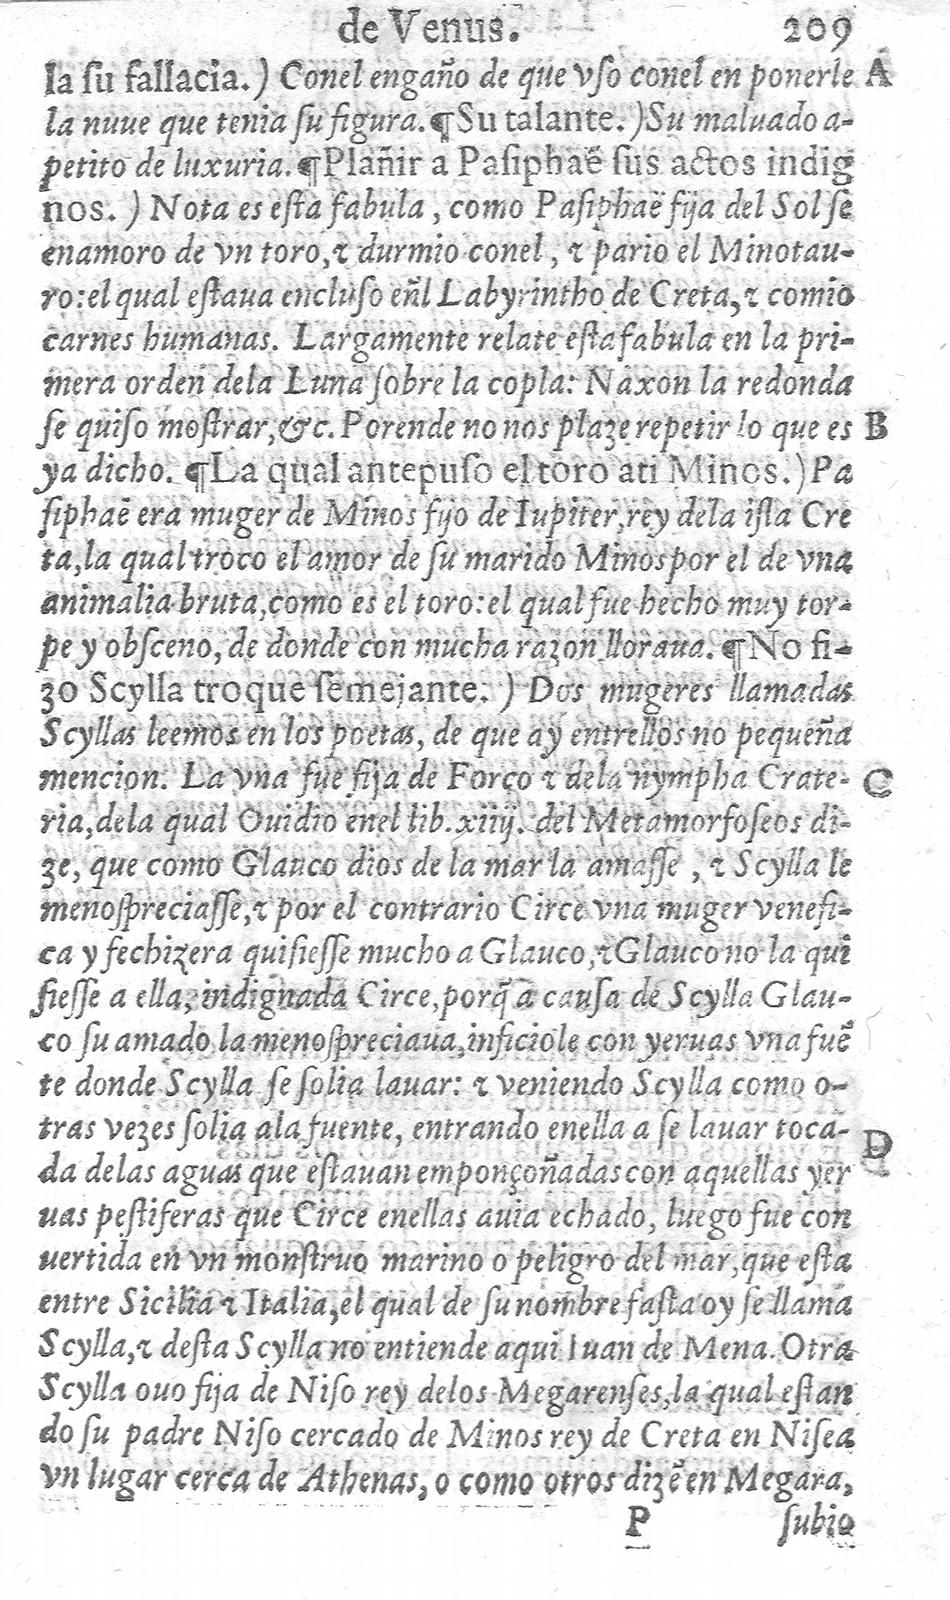 de Venus. 209
la ſu fallacia.) Conel engaño de que vſo conel en ponerle A
la nuue que tenia ſu figura.¶Su talante.)Su maluado a-
petito de luxuria.¶Plañir a Paſiphaë ſus actos indig
nos. ) Nota es eſta fabula, como Paſiphaë fija del Sol ſe
enamoro de vn toro,⁊ durmio conel, ⁊ pario el Minotau-
ro:el qual eſtaua encluſo eñl Labyrintho de Creta,⁊ comio
carnes humanas. Largamente relate eſta fabula en la pri-
mera orden dela Luna ſobre la copla: Naxon la redonda
ſe quiſo moſtrar,&c. Porende no nos plaze repetir lo que es B
ya dicho. ¶La qual antepuſo el toro ati Minos.) Pa
ſiphaë era muger de Minos fijo de Iupiter,rey dela iſla Cre
ta,la qual troco el amor de ſu marido Minos por el de vna
animalia bruta,como es el toro:el qual fue hecho muy tor-
pe y obſceno, de donde con mucha razon lloraua. ¶No fi-
zo Scylla troque ſemejante. ) Dos mugeres llamadas
Scyllas leemos en los poetas, de que ay entrellos no pequeña
mencion. La vna fue fija de Forço ⁊ dela nympha Crate- C
ria,dela qual Ouidio enel lib.xiiij. del Metamorfoſeos di-
ze, que como Glauco dios de la mar la amaſſe , ⁊ Scylla le
menoſpreciaſſe,⁊ por el contrario Circe vna muger venefi-
ca y fechizera quiſieſſe mucho a Glauco,⁊Glauco no la qui
ſieſſe a ella, indignada Circe,porq̃ a cauſa de Scylla Glau-
co ſu amado la menoſpreciaua,inficiole con yeruas vna fuē
te donde Scylla ſe ſolia lauar: ⁊ veniendo Scylla como o-
tras vezes ſolia ala fuente, entrando enella a ſe lauar toca-
da delas aguas que eſtauan emponçoñadas con aquellas yer D
uas peſtiferas que Circe enellas auia echado, luego fue con
uertida en vn monſtruo marino o peligro del mar,que eſta
entre Sicilia ⁊ Italia,el qual de ſu nombre faſta oy ſe llama
Scylla,⁊ deſta Scylla no entiende aqui Iuan de Mena. Otra
Scylla ouo fija de Niſo rey delos Megarenſes,la qual eſtan
do ſu padre Niſo cercado de Minos rey de Creta en Niſea
vn lugar cerca de Athenas, o como otros dizē en Megara,
P ſubio